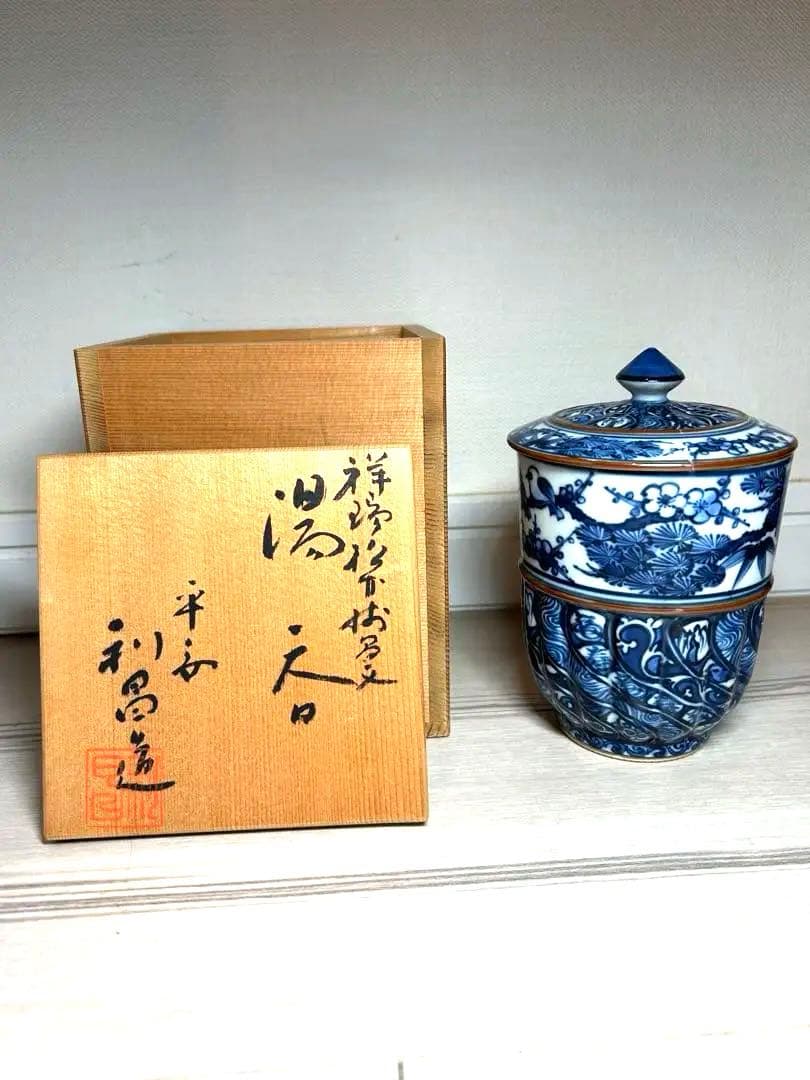 祥瑞松竹梅画文
湯
天目
平安
利昌造